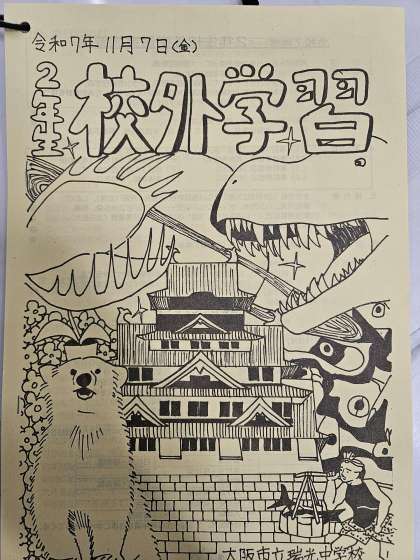 令和7年11月7日(金)
2年生
校外学習
大阪市立瑞光中学校